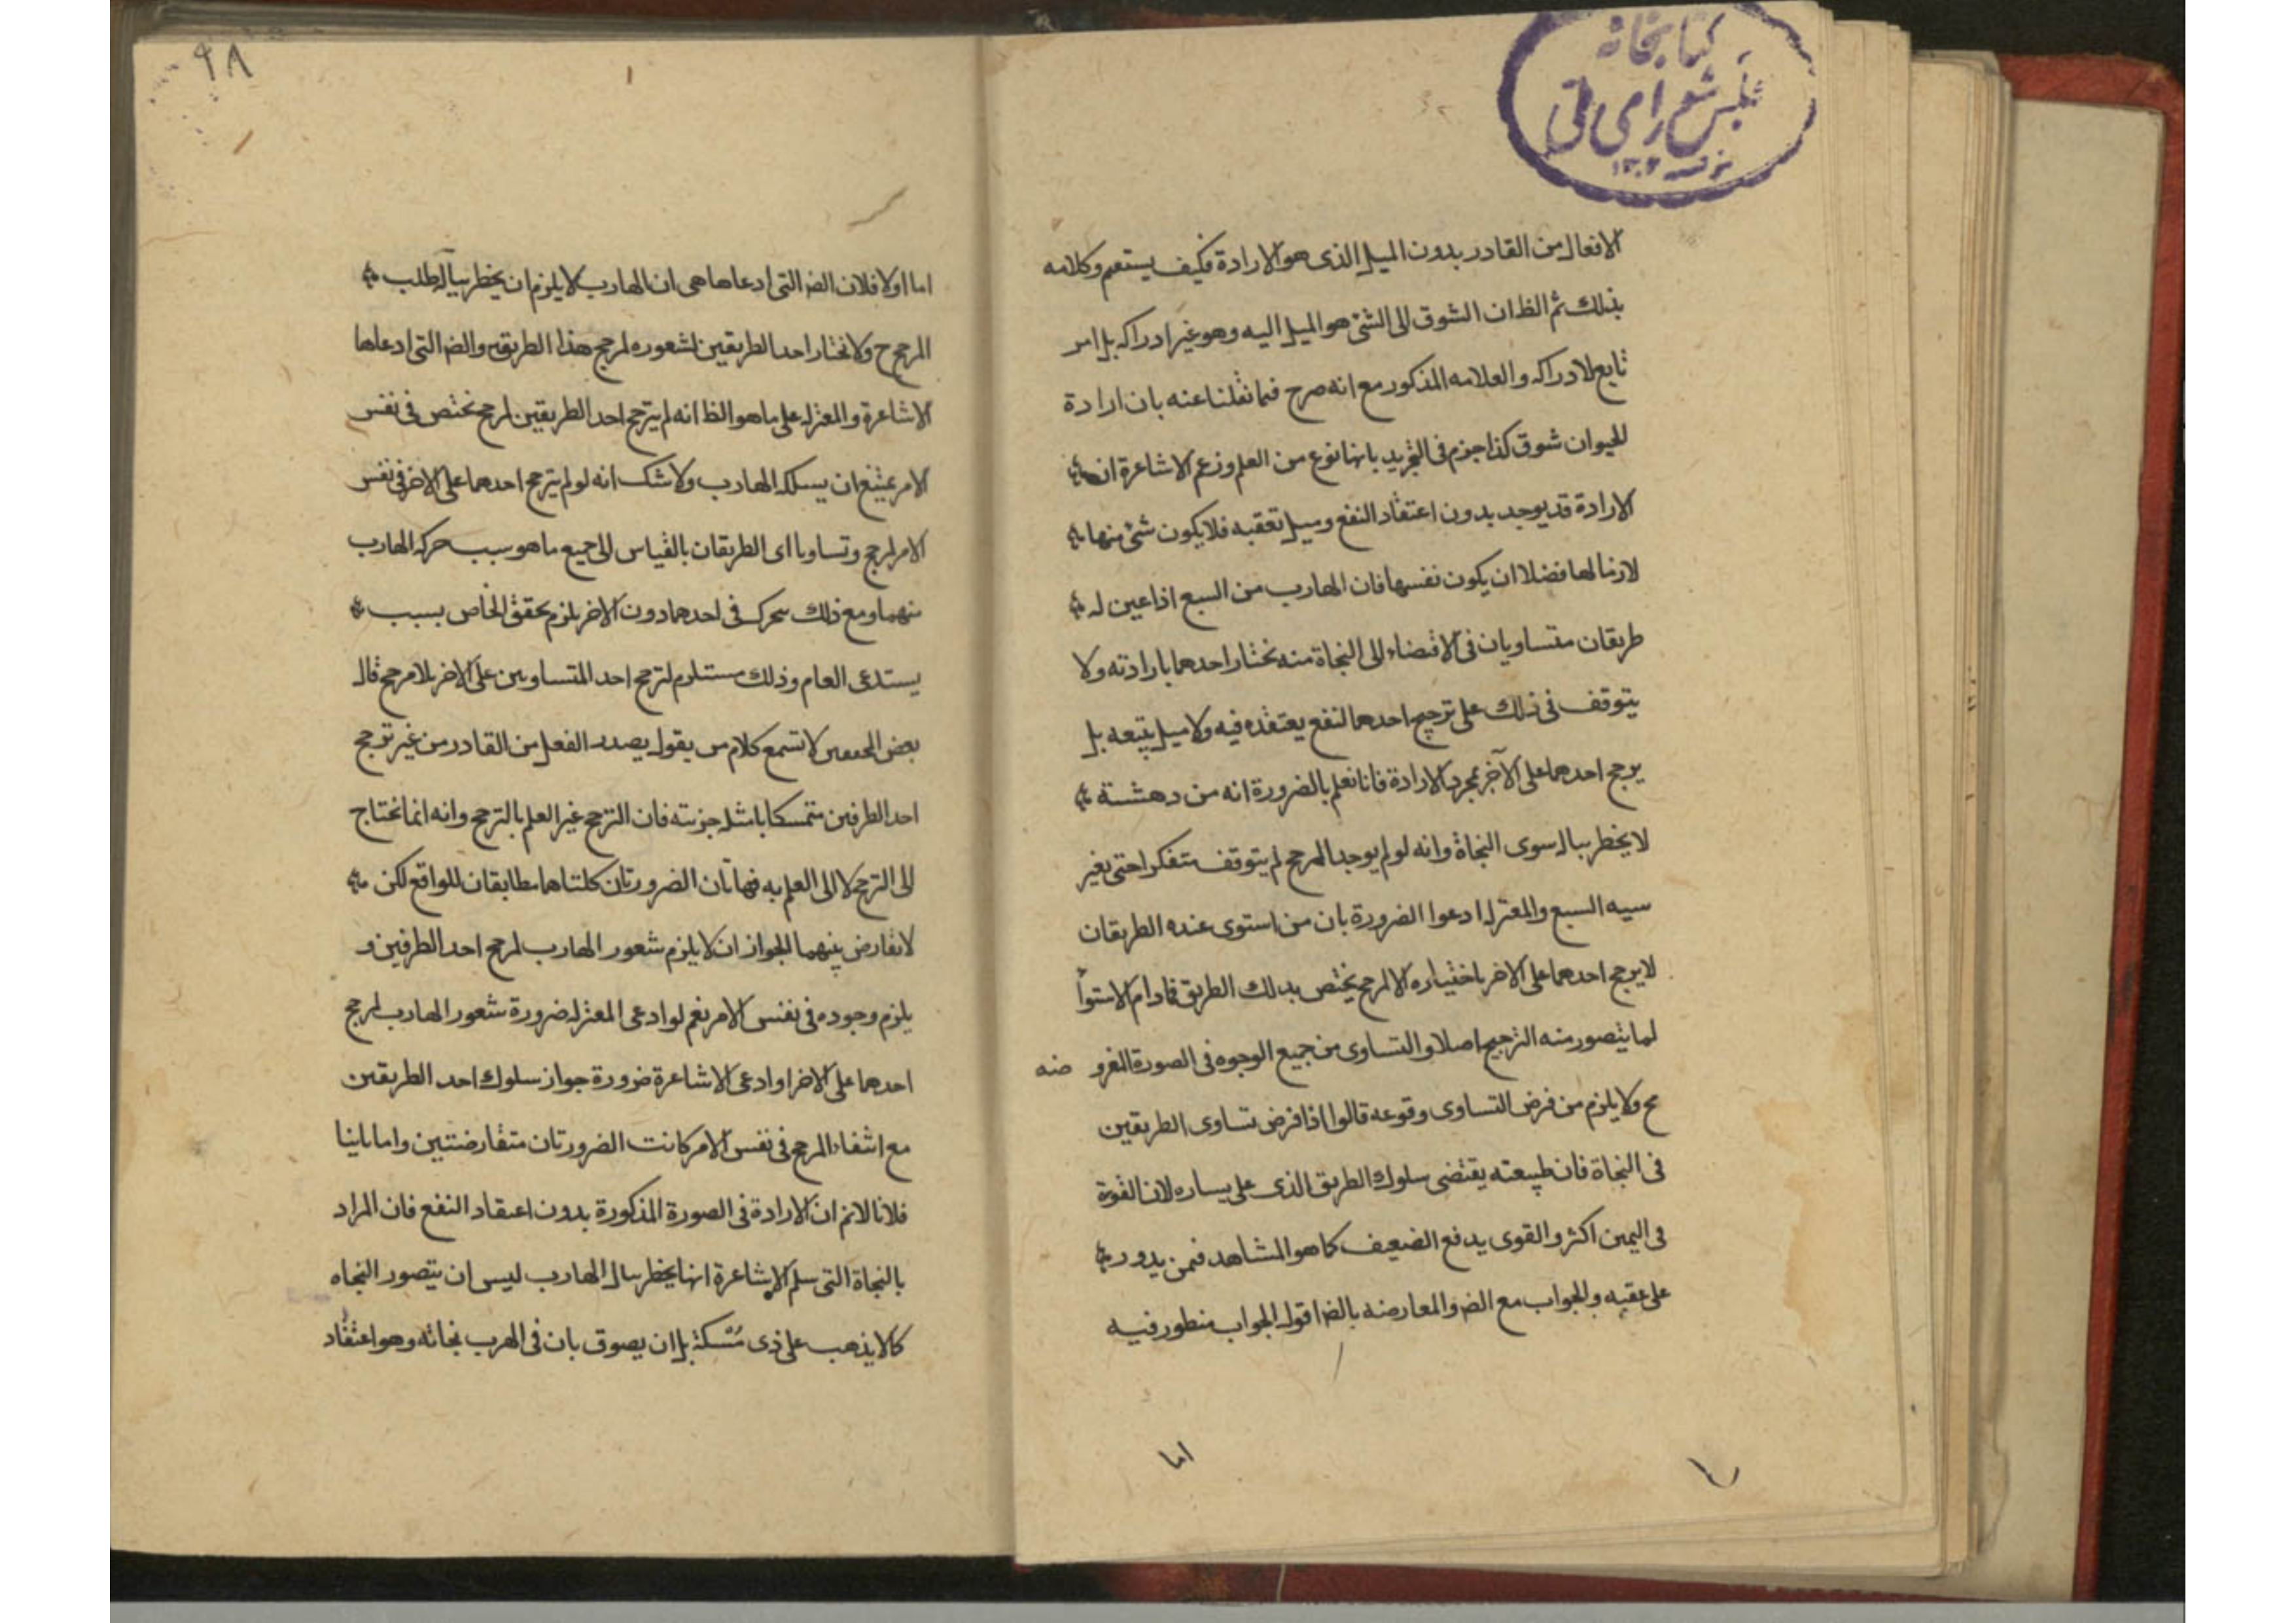 كتابخانه
مجلس شورای ملی
۱۳۰۲
الافعال من القادر بدون الميل الذى هو الارادة فكيف يستقيم وكلامه
بذلك ثم الظ ان الشوق الى الشئ هو الميل اليه وهو غير ادراكه بل امر
تابع لادراكه والعلامه المذكور مع انه صرح فيما نقلنا عنه بان ارادة
الحيوان شوق كذا جزم فى التجريد بانها نوع من العلم وزعم الاشاعرة ان
الارادة قد يوجد بدون اعتقاد النفع وميل تعقبه فلا يكون شئ منها
لازما لها فضلا ان يكون نفسها فان الهارب من السبع اذا عين له
طريقان متساويان فى الافضاء الى النجاة منه نختار احدهما بارادته ولا
يتوقف فى ذلك على ترجيح احدهما لنفع يعتقده فيه ولا ميل يتبعه بل
يرجح احدهما على الآخر بمجرد الارادة فانا نعلم بالضرورة انه من دهشته
لا يخطر بباله سوى النجاة وانه لو لم يوجد المرجح لم يتوقف متفكرا حتى
السبع والمعتزلة ادعوا الضرورة بان من استوى عنده الطريقان
لا يرجح احدهما على الاخر باختياره الا لمرجح يختص بذلك الطريق فما دام الاستوا
لما يتصور منه الترجيح اصلا والتساوى من جميع الوجوه فى الصورة المفرو ضه
مح ولا يلزم من فرض التساوى وقوعه قالوا اذا فرض تساوى الطريقين
فى النجاة فان طبيعته يقتضى سلوك الطريق الذى على يساره لان القوة
فى اليمين اكثر والقوى يدفع الضعيف كما هو المشاهد فيمن يدور
على عقبه والجواب مع الضر والمعارضه بالضر اقول الجواب منظور فيه
اما
٩٨
اما اولا فلان الضر التى ادعاها هى ان الهارب لا يلزم ان يخطر بباله طلب
المرجح ح ولا نختار احد الطريقين لشعوره لمرجح هذا الطريق والضر التى ادعاها
الاشاعرة والمعتزلة على ما هو الظ انه لم يترجح احد الطريقين لمرجح نختص فى نفس
الامر يمتنع ان يسلكه الهارب ولا شك انه لو لم يترجح احدهما على الاخر فى نفس
الامر لمرجح وتساويا اى الطريقان بالقياس الى جميع ما هو سبب حركة الهارب
منهما ومع ذلك تحرك فى احدهما دون الاخر يلزم تحقق الخاص بسبب
يستدعى العام وذلك مستلزم لترجح احد المتساويين على الاخر بلا مرجح قال
بعض المحققين لا تسمع كلام من يقول يصدر الفعل من القادر من غير ترجح
احد الطرفين متمسكا بامثلة جزئيته فان الترجح غير العلم بالترجح وانه انما نحتاج
الى الترجح لا الى العلم به فهاتان الضرورتان كلتاهما مطابقان للواقع لكن
لا تعارض بينهما لجواز ان لا يلزم شعور الهارب لمرجح احد الطرفين و
يلزم وجوده فى نفس الامر نعم لو ادعى المعتزلة ضرورة شعور الهارب لمرجح
احدهما على الاخر او ادعى الاشاعرة ضرورة جواز سلوك احد الطريقين
مع انتفاء المرجح فى نفس الامر كانت الضرورتان متعارضتين واما ثانيا
فلانا لانم ان الارادة فى الصورة المذكورة بدون اعتقاد النفع فان المراد
بالنجاة التى سلم الاشاعرة انها يخطر ببال الهارب ليس ان يتصور النجاه
كما لا يذهب على ذى مسكة بل ان يصدق بان فى الهرب نجاته وهو اعتقاد